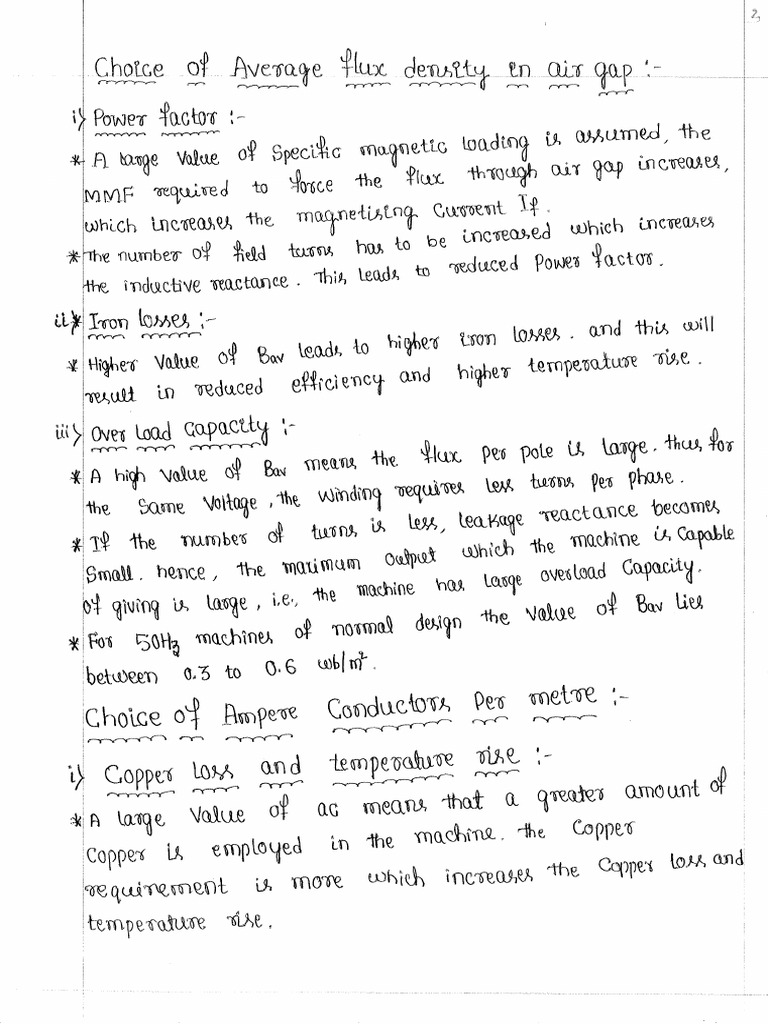 2,
Choice of Average flux density in air gap :-
i) Power factor :-
* A large value of specific magnetic loading is assumed, the
MMF required to force the flux through air gap increases,
which increases the magnetising Current If.
* The number of field turns has to be increased which increases
the inductive reactance. This leads to reduced Power factor.
ii)* Iron losses :-
* Higher value of Bav leads to higher iron losses. and this will
result in reduced efficiency and higher temperature rise.
iii) Over Load Capacity :-
* A high value of Bav means the flux per pole is large. thus for
the same voltage, the winding requires less turns per phase.
* If the number of turns is less, leakage reactance becomes
small. hence, the maximum output which the machine is capable
of giving is large, i.e., the machine has large overload capacity.
* For 50Hz machines of normal design the value of Bav lies
between 0.3 to 0.6 wb/m².
Choice of Ampere Conductors Per metre :-
i) Copper Loss and temperature rise :-
* A large value of ac means that a greater amount of
Copper is employed in the machine. the Copper
requirement is more which increases the Copper loss and
temperature rise.